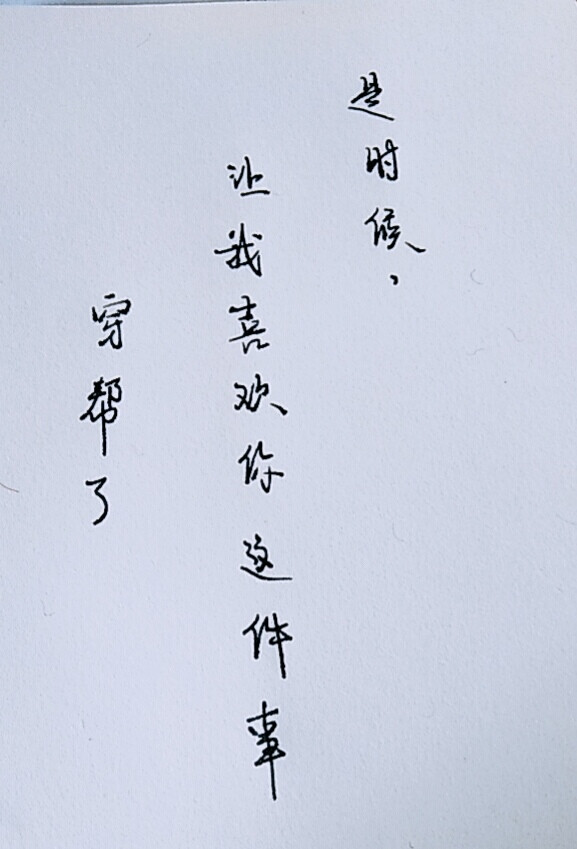 是时候，
让我喜欢你这件事
穿帮了